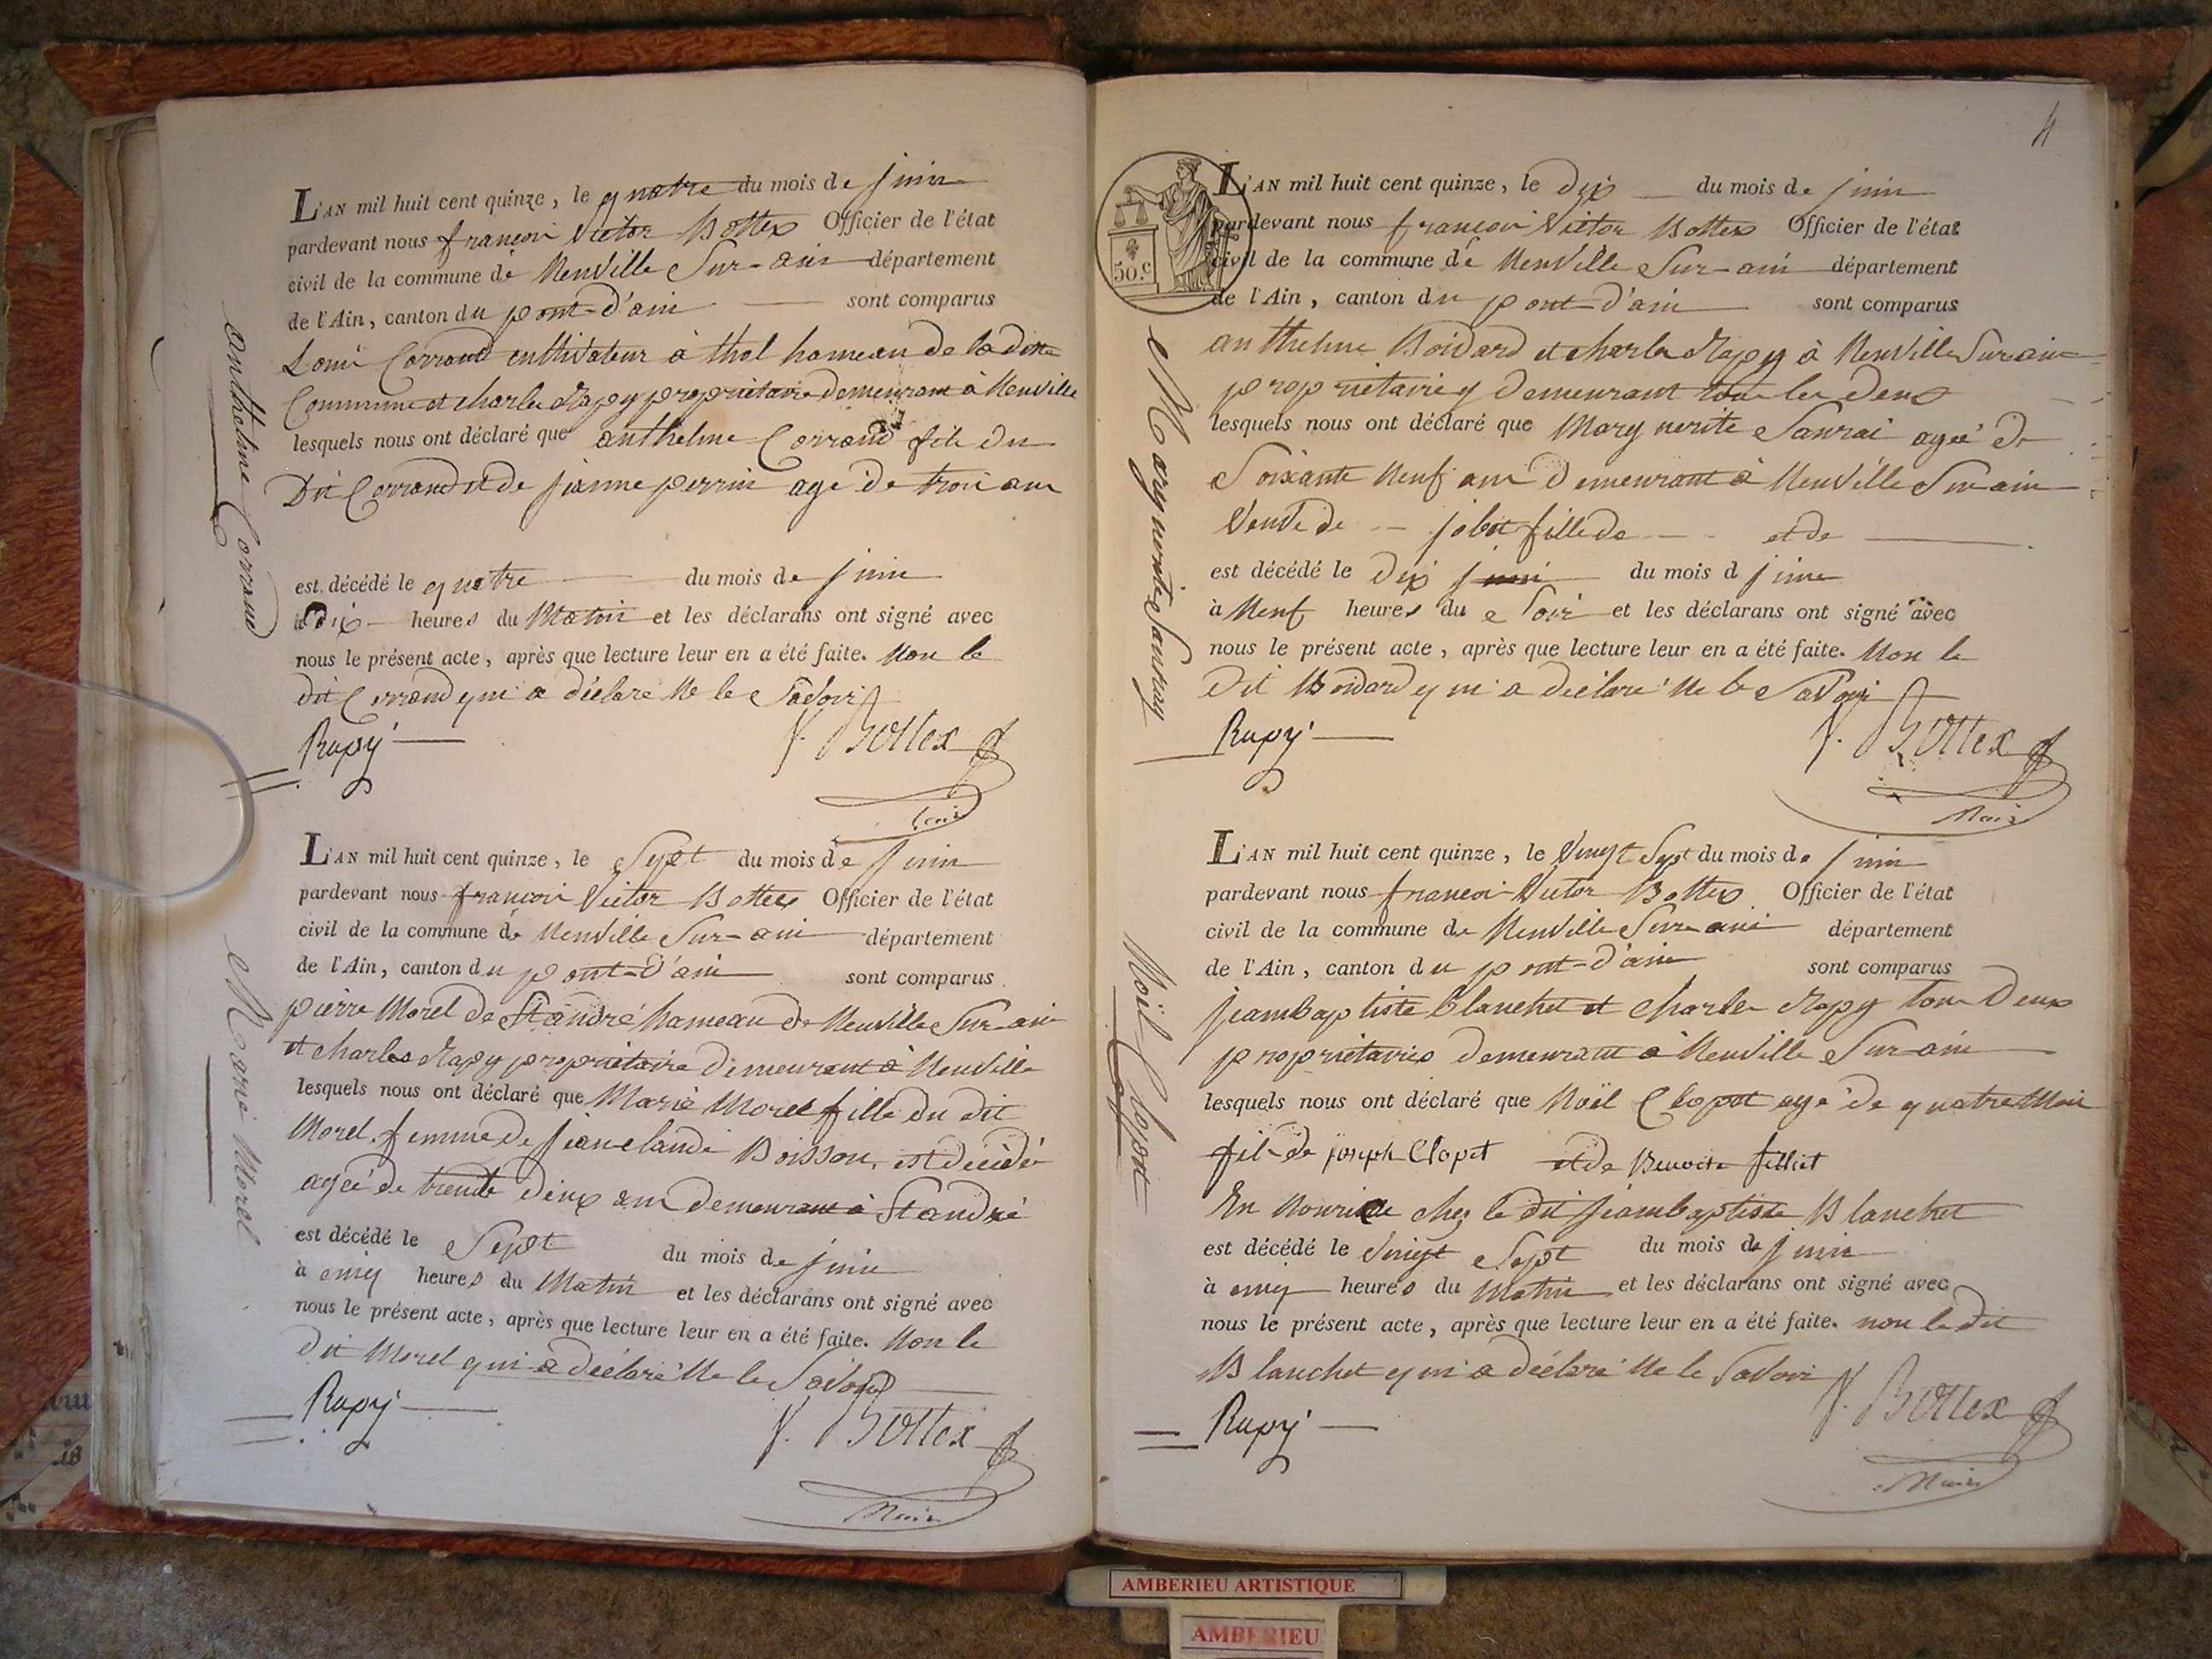 L'AN mil huit cent quinze, le quatre du mois de juin
pardevant nous françois Victor Bottex Officier de l'état
civil de la commune de Neuville Sur-ain département
de l'Ain, canton du pont-d'ain sont comparus
Louis Corrand cultivateur à thol hameau de la ditte
Commune et charles Rapy propriétaire demeurant à Neuville
lesquels nous ont déclaré que anthelme Corrand fils du
Dit Corrand et de jeanne perrin agé de trois ans
est décédé le quatre du mois de juin
à Dix heures du Matin et les déclarans ont signé avec
nous le présent acte, après que lecture leur en a été faite. Non le
dit Corrand qui a déclaré Ne le Savoir
Rapy V. Bottex
Maire
anthelme Corrand
L'AN mil huit cent quinze, le Sept du mois de juin
pardevant nous françois Victor Bottex Officier de l'état
civil de la commune de Neuville Sur-ain département
de l'Ain, canton du pont-d'ain sont comparus
pierre Morel de St andré hameau de Neuville Sur-ain
et charles Rapy propriétaire demeurant à Neuville
lesquels nous ont déclaré que Marie Morel fille du dit
Morel femme de jean claude Boisson, est décédée
agée de trente deux ans demeurant à St andré
est décédé le Sept du mois de juin
à cinq heures du Matin et les déclarans ont signé avec
nous le présent acte, après que lecture leur en a été faite. Non le
Dit Morel qui a déclaré Ne le Savoir
Rapy V. Bottex
Maire
Marie Morel
4
50.c
L'AN mil huit cent quinze, le Dix du mois de juin
pardevant nous françois Victor Bottex Officier de l'état
civil de la commune de Neuville Sur-ain département
de l'Ain, canton du pont-d'ain sont comparus
anthelme Boidard et charles Rapy à Neuville Sur ain
propriétaires demeurant tous les deux
lesquels nous ont déclaré que Mary Sanrai agée de
Soixante Neuf ans Demeurant à Neuville Sur ain
Veuve de jobot fille de et de
est décédé le Dix du mois d juin
à Neuf heures du Soir et les déclarans ont signé avec
nous le présent acte, après que lecture leur en a été faite. Non le
Dit Boidard qui a déclaré Ne le Savoir
Rapy V. Bottex
Maire
L'AN mil huit cent quinze, le Vingt Sept du mois de juin
pardevant nous françois Victor Bottex Officier de l'état
civil de la commune de Neuville Sur ain département
de l'Ain, canton du pont-d'ain sont comparus
jeambaptiste blanchet et charles Rapy tous Deux
propriétaires demeurant à Neuville Sur-ain
lesquels nous ont déclaré que Noël Clopot agé de quatre Mois
fils de joseph Clopet et de Benoite filliet
En Nourice chez le dit jeambaptiste Blanchet
est décédé le Vingt Sept du mois de juin
à cinq heures du Matin et les déclarans ont signé avec
nous le présent acte, après que lecture leur en a été faite. non le dit
Blanchet qui a déclaré Ne le Savoir
Rapy V. Bottex
Maire
Noël Clopot
AMBERIEU ARTISTIQUE
AMBERIEU